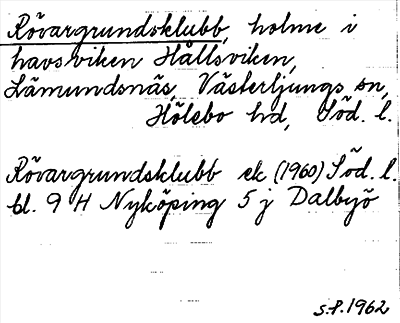 Rövargrundsklubb, holme i
havsviken Hållsviken,
Lämundsnäs, Västerljungs sn,
Hölebo hd, Söd. l.
Rövargrundsklubb ek (1960) Söd. l.
bl. 9 H Nyköping 5 j Dalbyö
S.P. 1962